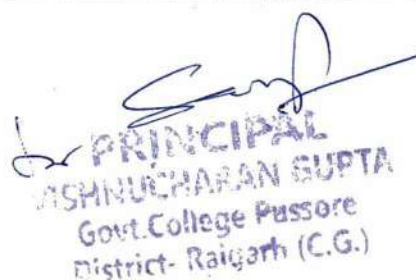 for PRINCIPAL
VISHNUCHARAN GUPTA
Govt.College Pussore
District- Raigarh (C.G.)